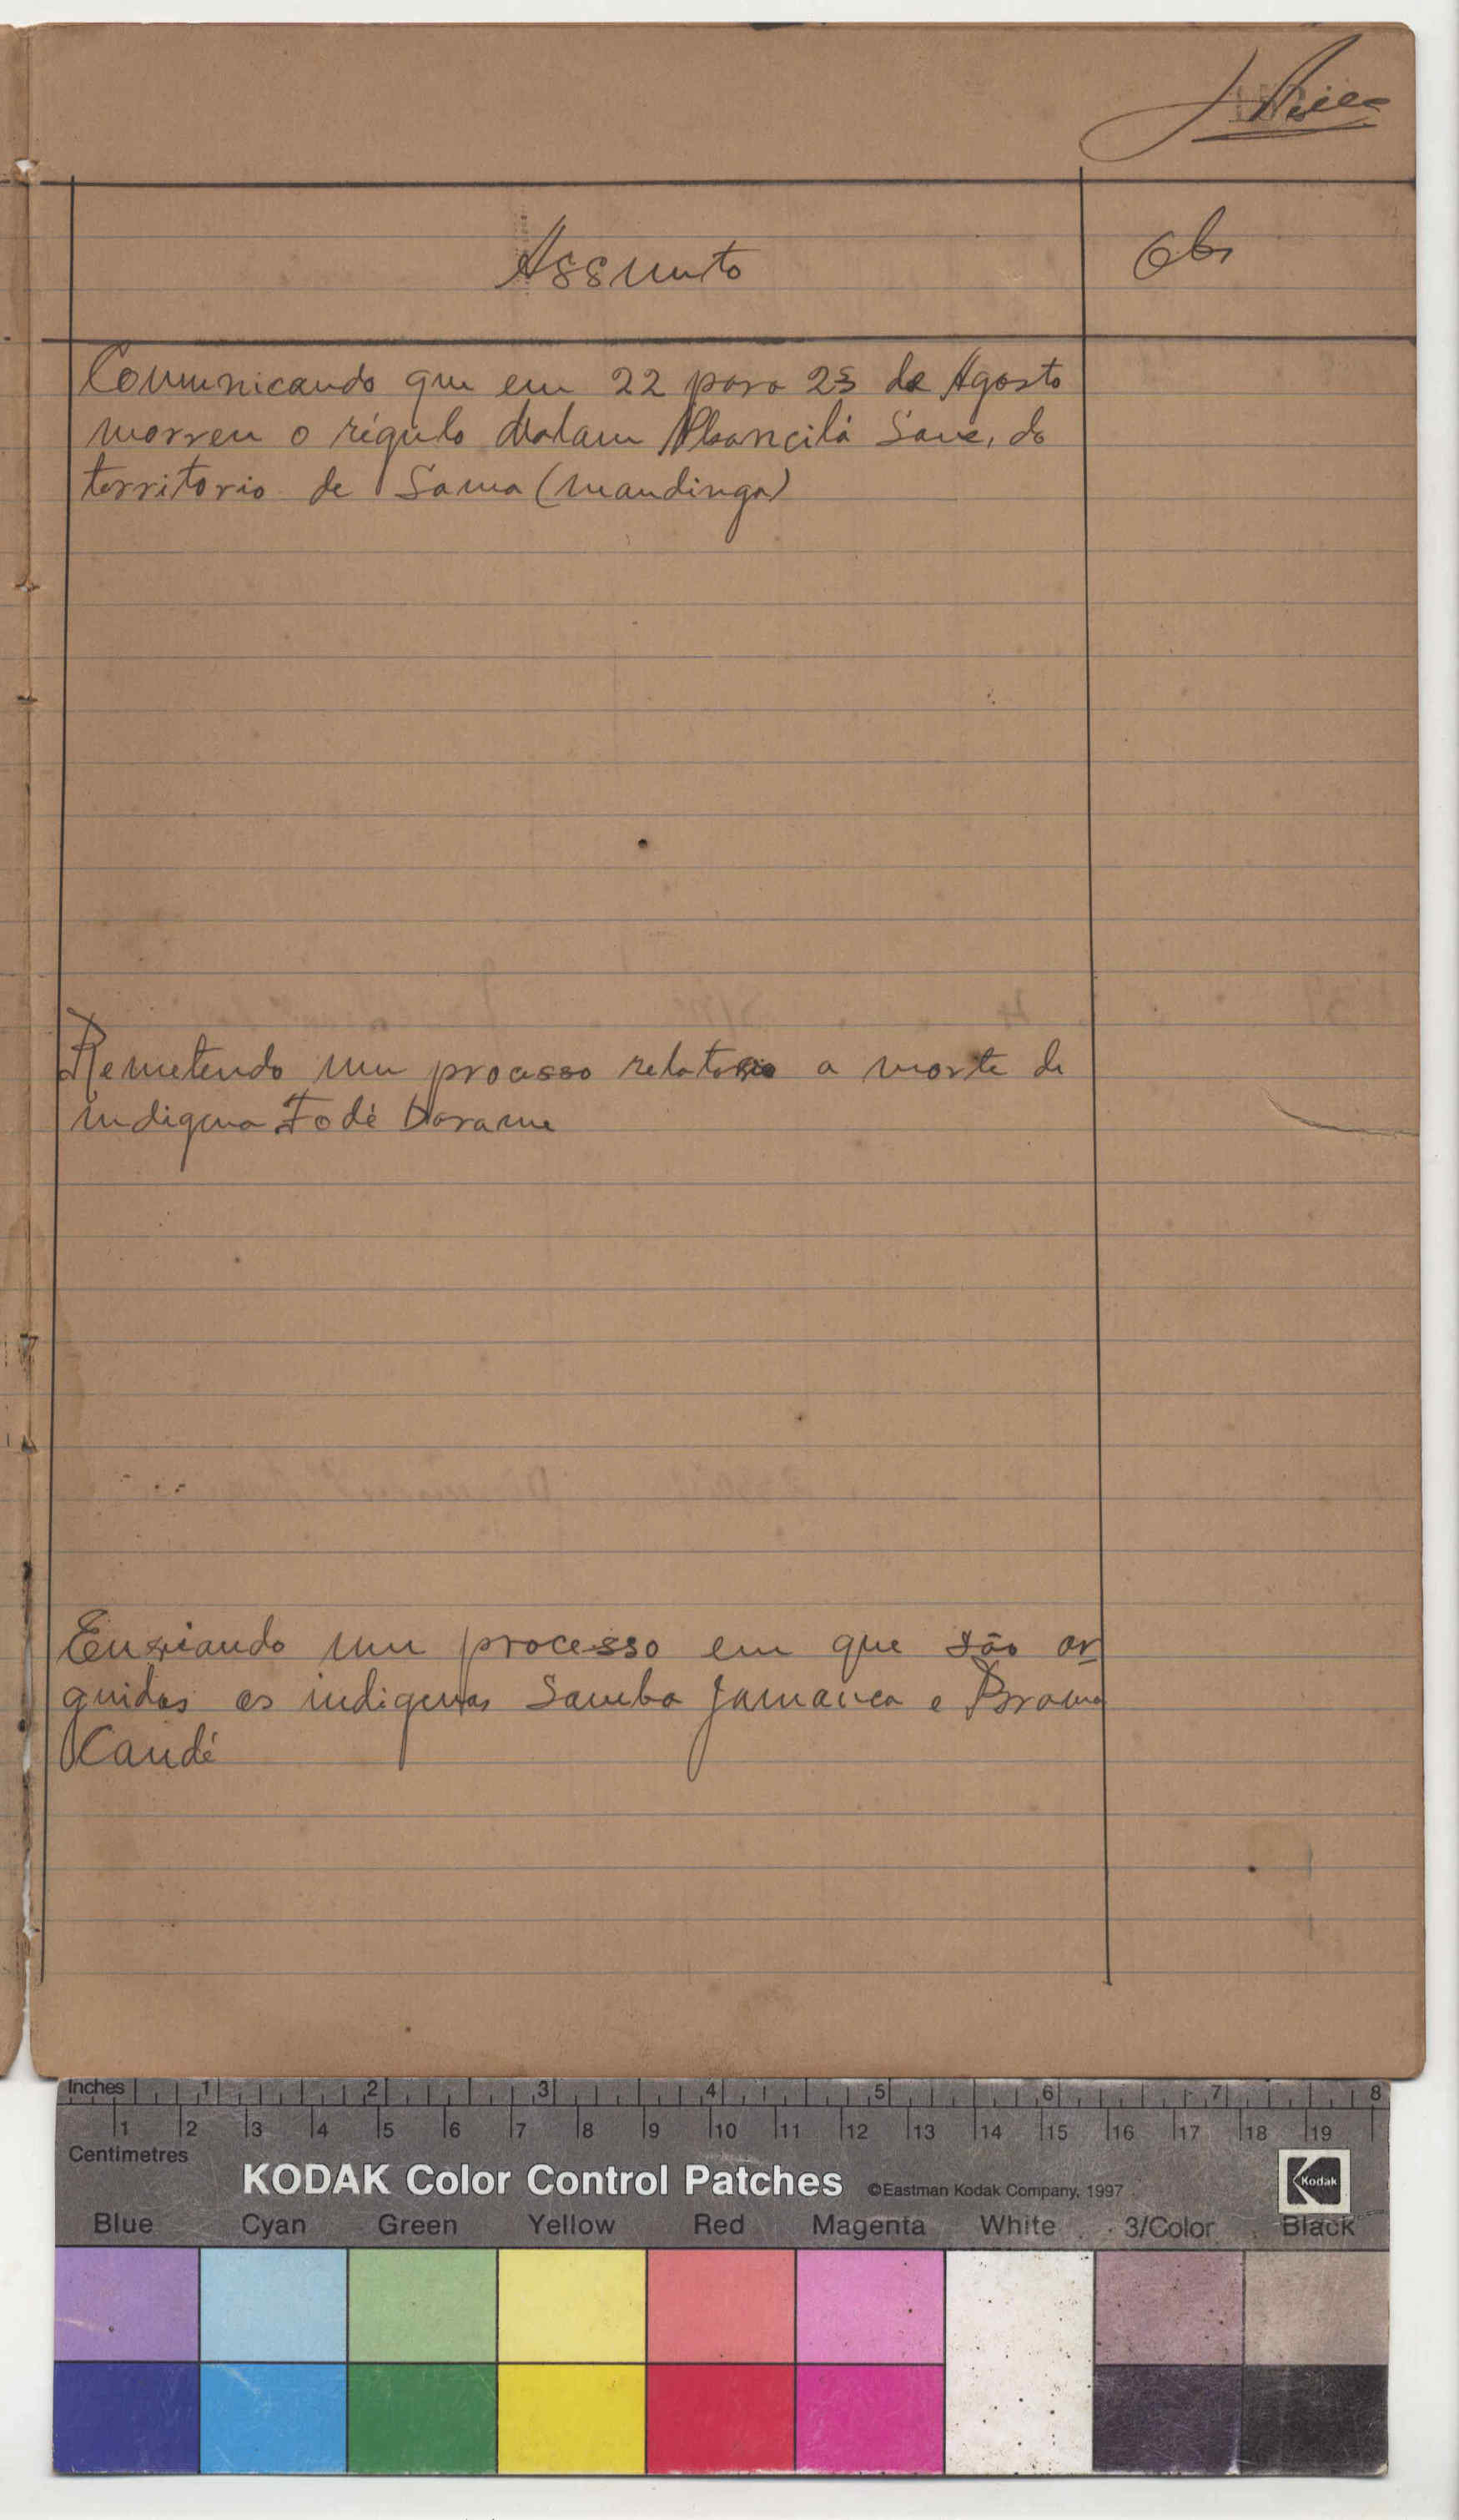 Assunto
Obs
Comunicando que em 22 para 23 de Agosto
morreu o régulo Malam Sane, do
territorio de Sama (mandinga)
Remetendo um processo relatorio a morte de
indigena Fodé Darame
Enviando um processo em que são ar
guidos os indigenas Samba Jamanca e Brama
Candé
Inches 1 2 3 4 5 6 7 8
1 2 3 4 5 6 7 8 9 10 11 12 13 14 15 16 17 18 19
Centimetres
KODAK Color Control Patches ©Eastman Kodak Company, 1997 Kodak
Blue Cyan Green Yellow Red Magenta White 3/Color Black